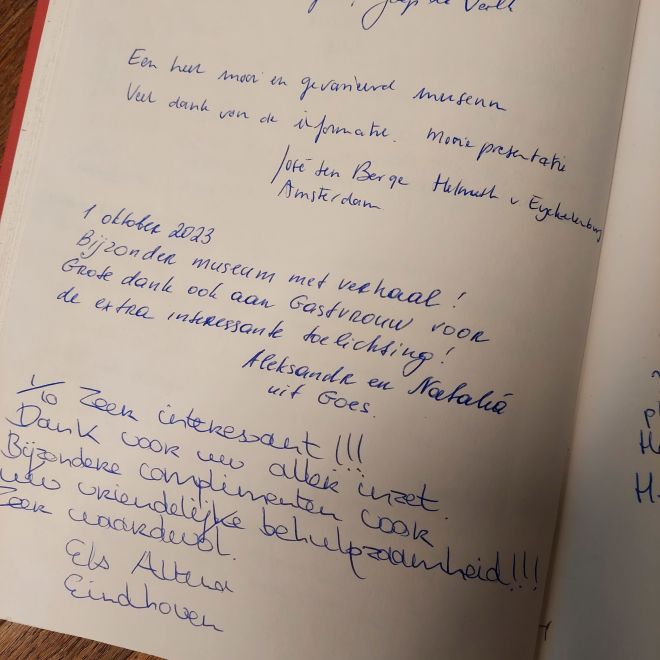 Een heel mooi en gevarieerd museum
Veel dank van de informatie. Mooie presentatie
José ten Berge Helmuth v
Amsterdam
1 oktober 2023
Bijzonder museum met verhaal!
Grote dank ook aan Gastvrouw voor
de extra interessante toelichting!
Aleksandr en Natalia
uit Goes.
1/10 Zeer interessant!!!
Dank voor uw aller inzet.
Bijzondere complimenten voor
uw vriendelijke behulpzaamheid!!!
Zeer waardevol.
Els Altena
Eindhoven